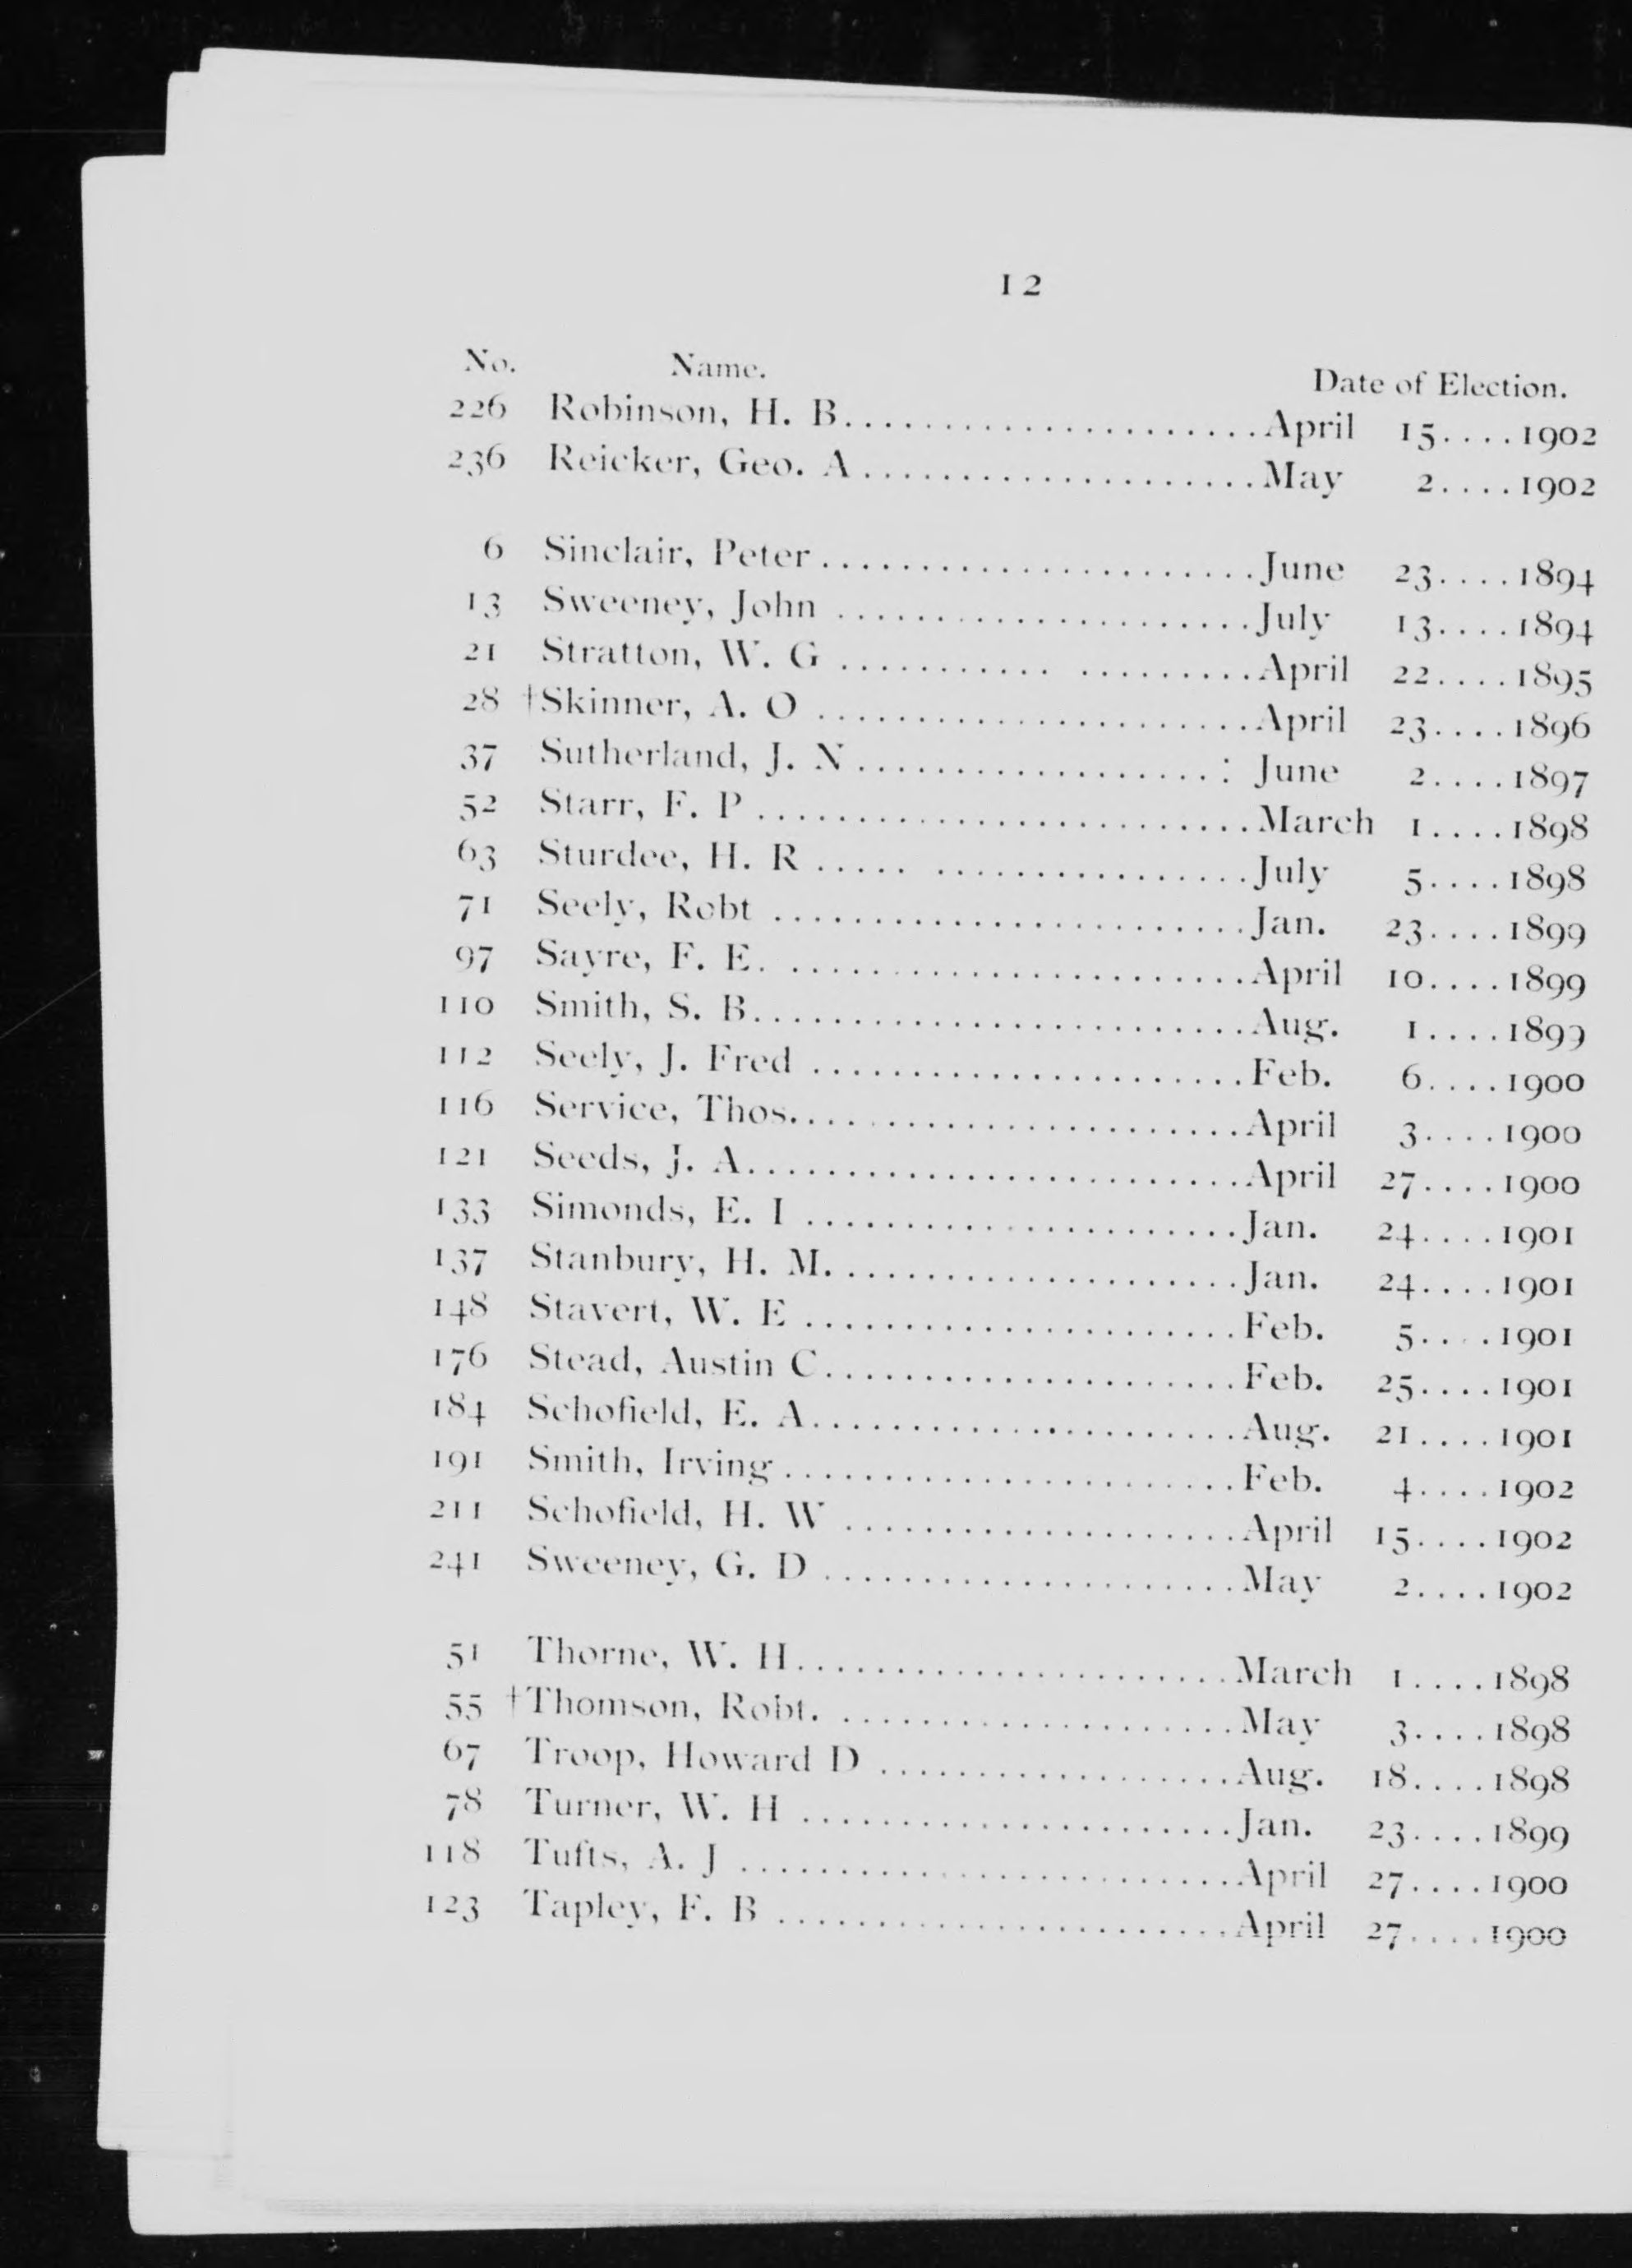 12
No. Name. Date of Election.
226 Robinson, H. B. ..................... April 15....1902
236 Reicker, Geo. A .................... May 2....1902
6 Sinclair, Peter ...................... June 23....1894
13 Sweeney, John ..................... July 13....1894
21 Stratton, W. G ........... ......... April 22....1895
28 †Skinner, A. O ...................... April 23....1896
37 Sutherland, J. N .................. : June 2....1897
52 Starr, F. P ......................... March 1....1898
63 Sturdee, H. R ..... ................ July 5....1898
71 Seely, Robt ........................ Jan. 23....1899
97 Sayre, F. E. ....................... April 10....1899
110 Smith, S. B. ........................ Aug. 1....1899
112 Seely, J. Fred ...................... Feb. 6....1900
116 Service, Thos. ...................... April 3....1900
121 Seeds, J. A. ........................ April 27....1900
133 Simonds, E. I ...................... Jan. 24....1901
137 Stanbury, H. M. .................... Jan. 24....1901
148 Stavert, W. E ...................... Feb. 5....1901
176 Stead, Austin C. .................... Feb. 25....1901
184 Schofield, E. A. ..................... Aug. 21....1901
191 Smith, Irving ....................... Feb. 4....1902
211 Schofield, H. W .................... April 15....1902
241 Sweeney, G. D ..................... May 2....1902
51 Thorne, W. H. ..................... March 1....1898
55 †Thomson, Robt. .................... May 3....1898
67 Troop, Howard D .................. Aug. 18....1898
78 Turner, W. H ...................... Jan. 23....1899
118 Tufts, A. J ......................... April 27....1900
123 Tapley, F. B ....................... April 27....1900